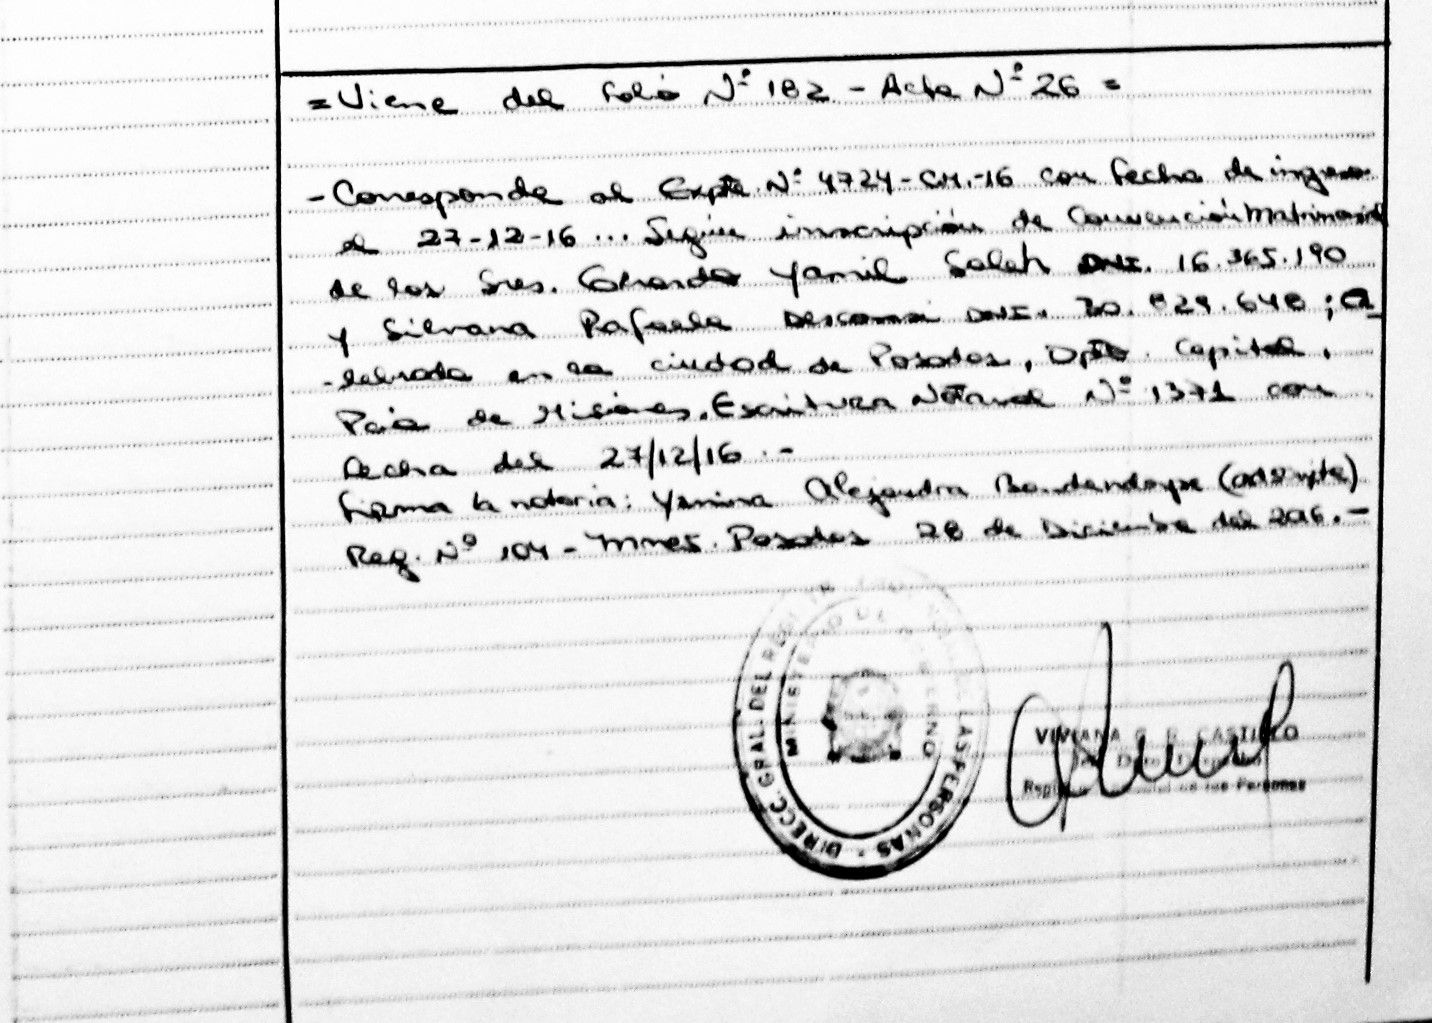 =Viene del folio Nº 182 - Acta Nº 26 =
- Corresponde al Expte. Nº 4724-CM.-16 con fecha de ingreso
el 27-12-16 ... Según inscripción de Convención Matrimonial
de los Sres. Yamil Saleh DNI. 16.365.190
y Silvana Rafaela DNI. 20.829.648 ; Ce
-lebrada en la ciudad de Posadas, Dpto. Capital,
Pcia de Misiones. Escritura Notarial Nº 1371 con
fecha del 27/12/16 .-
firma la notaria: Yanina Alejandra (adscripta)
Reg. Nº 104 - Mnes. Posadas 28 de Diciembre del 2016.-
DIRECC. GRAL. DEL REG. LAS PERSONAS -
MINISTERIO DE GOBIERNO
VIVIANA CASTILLO
de las Personas